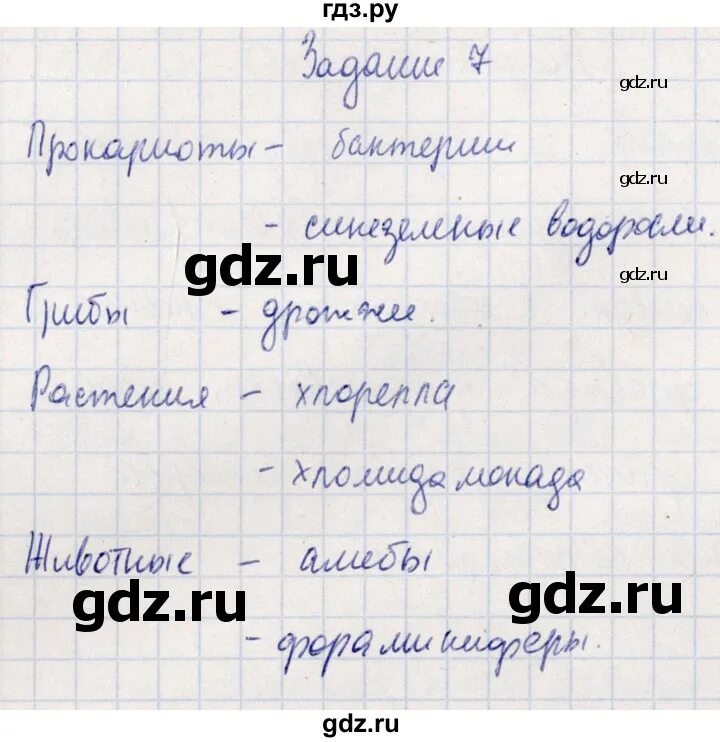 гдз.ру
Задание 7
gdz.ru
Прокариоты - бактерии
gdz.ru
- синезеленые водоросли.
gdz.ru
gdz.ru
Грибы - дрожжи.
Растения - хлорелла
- хломидамонада
Животные - амебы
gdz.ru
gdz.ru
- фораминиферы.
gdz.ru